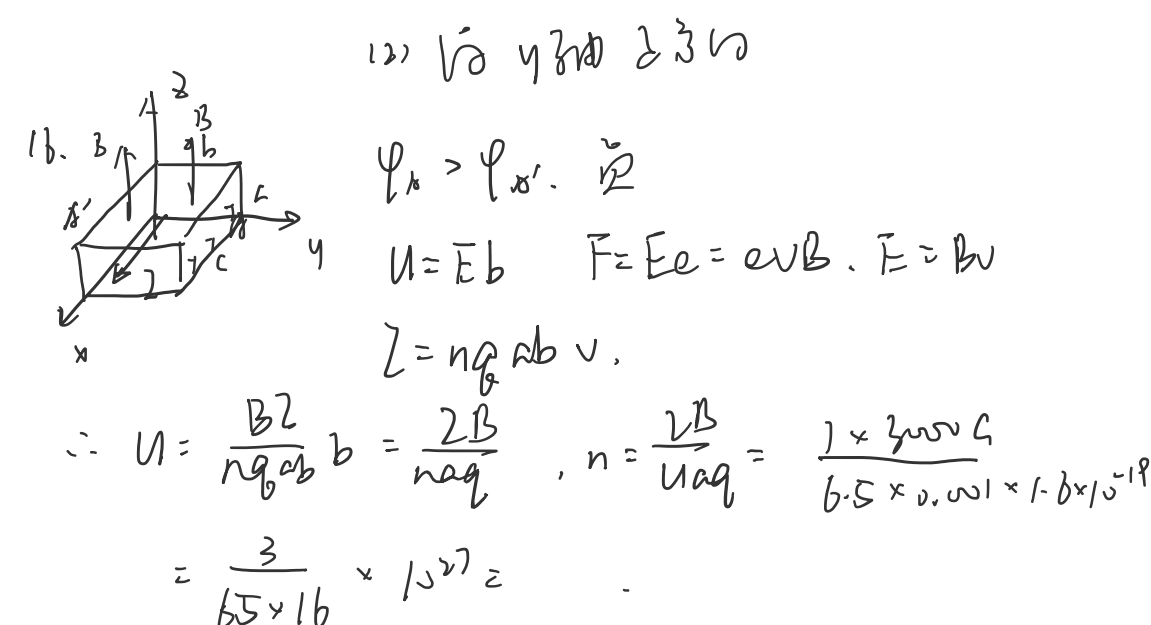 (2) 沿 y 轴
16.
A z
B
B
b
A'
c
y
I
x
φ_A > φ_A'.
U = Eb F = Ee = evB. E = Bv
I = nq ab v.
∴ U = \frac{BI}{nqab} b = \frac{IB}{naq} , n = \frac{IB}{Uaq} = \frac{1 × 3000 G}{6.5 × 0.001 × 1.6 × 10^{-19}}
= \frac{3}{65 × 16} × 10^{27} =